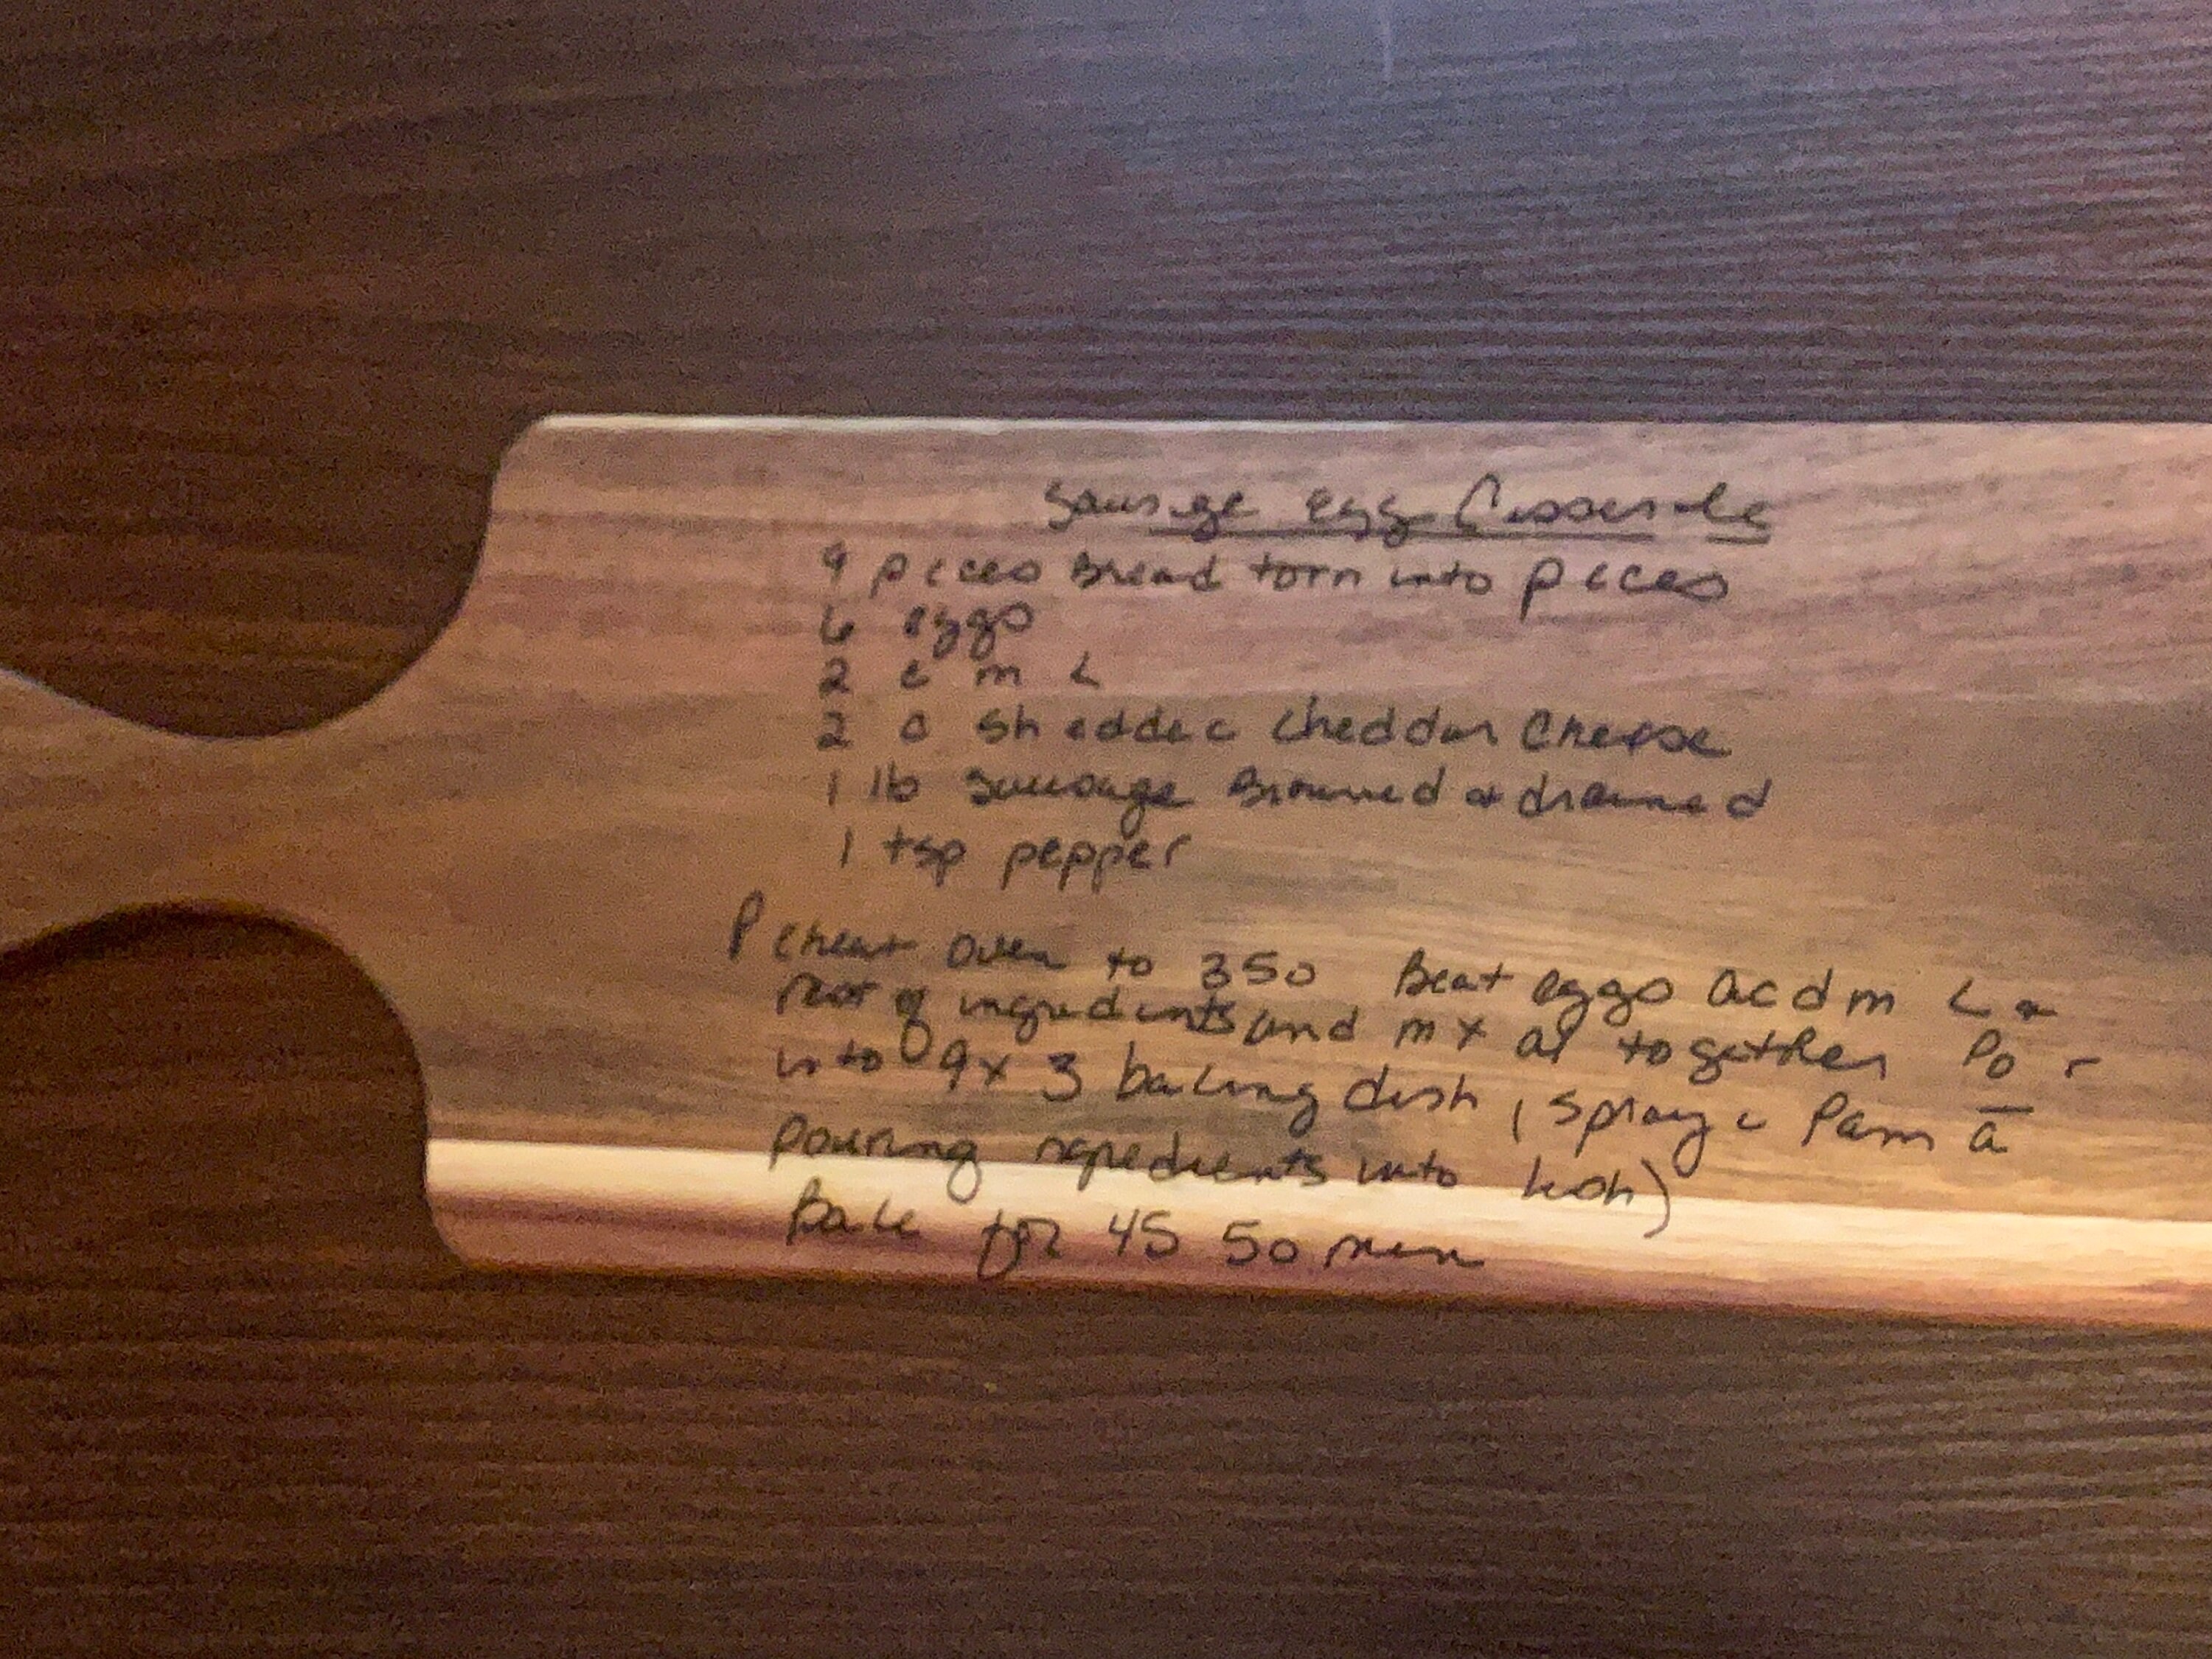 Sausage egg Casserole
9 pieces Bread torn into pieces
6 eggs
2 c m L
2 c Shedded Cheddar Cheese
1 lb Sausage Browned & drained
1 tsp pepper
Peheat oven to 350 Beat eggs add m L &
rest of ingredients and mx al together Po r
into 9x 3 baking dish (Spray c Pam ā
pouring ngredients into)
Bake for 45 50 min